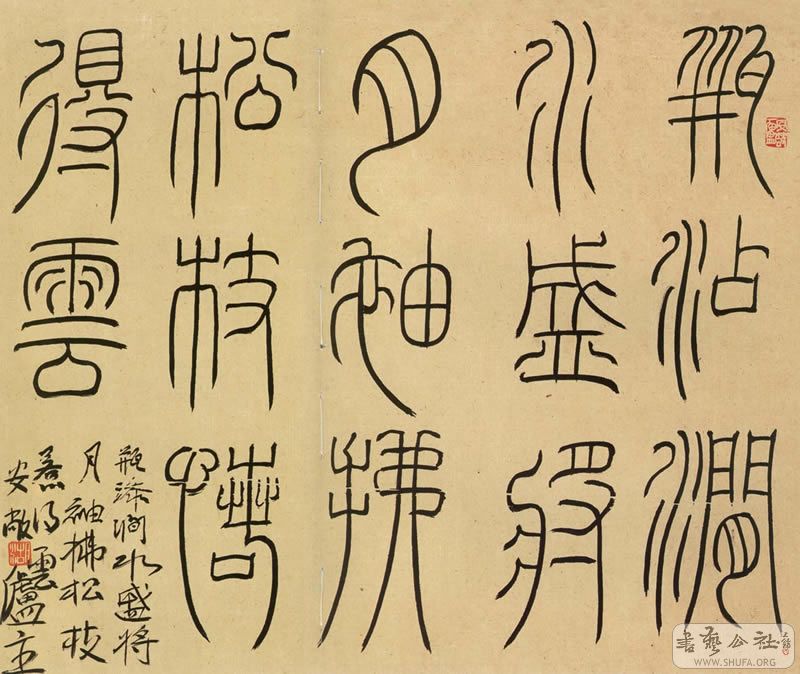 瓶沾澗
水盛將
月袖拂
松枝惹
得雲
瓶添澗水盛將
月袖拂松枝
惹得雲
安敞廬主
書藝公社
WWW.SHUFA.ORG